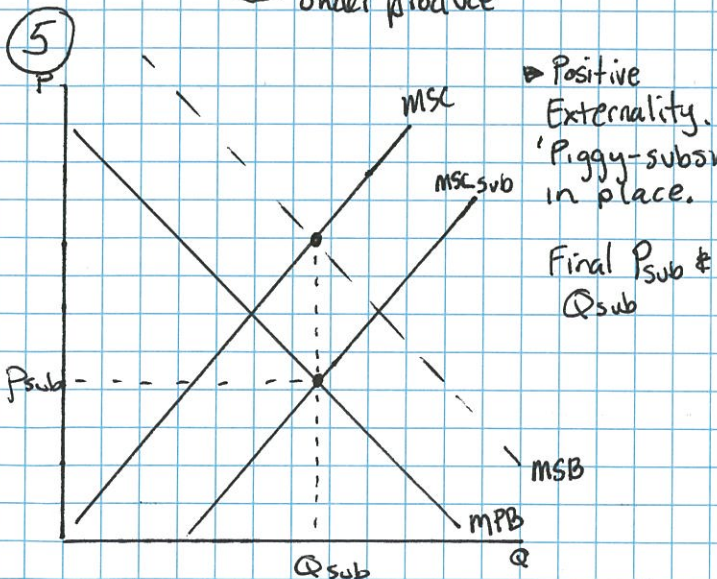 under produce
5
P
MSC
▸ Positive
Externality.
MSC sub
in place.
Final Psub &
Qsub
Psub
MSB
MPB
Qsub
Q